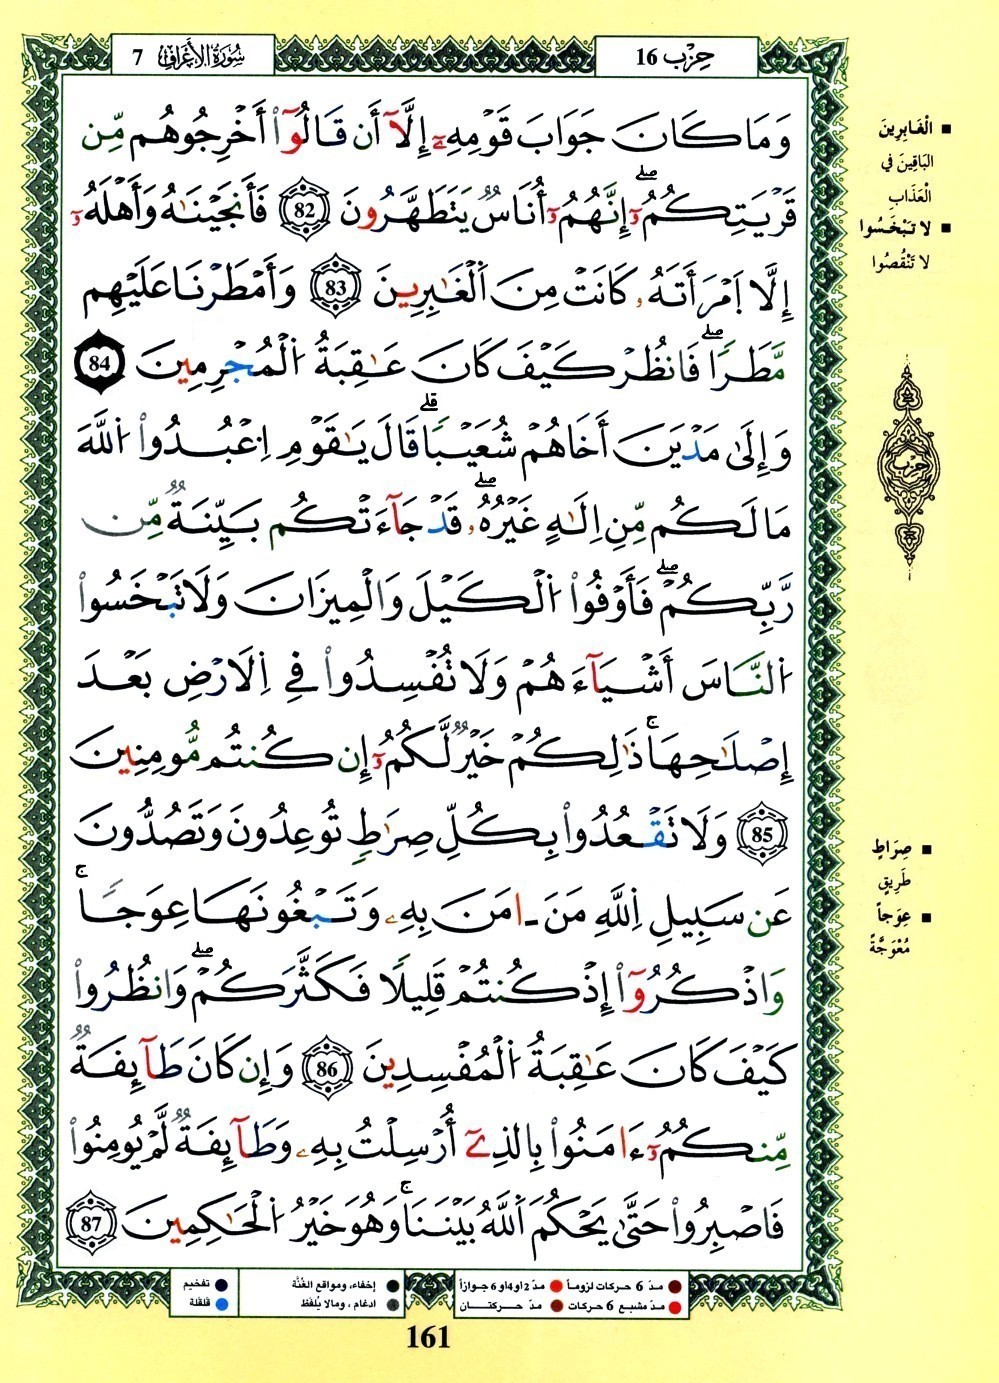 سُورَةُ الأَعْرَافِ 7
حِزْب 16
وَمَا كَانَ جَوَابَ قَوْمِهِۦٓ إِلَّآ أَن قَالُوٓاْ أَخْرِجُوهُم مِّن
قَرْيَتِكُمُۥٓۖ إِنَّهُمُۥٓ أُنَاسٌ يَتَطَهَّرُونَ 82 فَأَنجَيْنَٰهُ وَأَهْلَهُۥٓ
إِلَّا اَمْرَأَتَهُۥ كَانَتْ مِنَ اَلْغَٰبِرِينَ 83 وَأَمْطَرْنَا عَلَيْهِم
مَّطَرًاۖ فَانظُرْ كَيْفَ كَانَ عَٰقِبَةُ اُلْمُجْرِمِينَ 84
وَإِلَىٰ مَدْيَنَ أَخَاهُمْ شُعَيْبًاۗ قَالَ يَٰقَوْمِ اِعْبُدُواْ اُللَّهَ
مَا لَكُم مِّنِ اِلَٰهٍ غَيْرُهُۥۖ قَدْ جَآءَتْكُم بَيِّنَةٌ مِّن
رَّبِّكُمْۖ فَأَوْفُواْ اُلْكَيْلَ وَالْمِيزَانَ وَلَا تَبْخَسُواْ
اُلنَّاسَ أَشْيَآءَهُمْ وَلَا تُفْسِدُواْ فِي اِلَارْضِ بَعْدَ
إِصْلَٰحِهَاۚ ذَٰلِكُمْ خَيْرٌ لَّكُمُۥٓ إِن كُنتُم مُّومِنِينَ
85 وَلَا تَقْعُدُواْ بِكُلِّ صِرَٰطٍ تُوعِدُونَ وَتَصُدُّونَ
عَن سَبِيلِ اِللَّهِ مَنَ ـ امَنَ بِهِۦ وَتَبْغُونَهَا عِوَجًاۚ
وَاذْكُرُوٓاْ إِذْ كُنتُمْ قَلِيلًا فَكَثَّرَكُمْۖ وَانظُرُواْ
كَيْفَ كَانَ عَٰقِبَةُ اُلْمُفْسِدِينَ 86 وَإِن كَانَ طَآئِفَةٌ
مِّنكُمُۥٓ ءَامَنُواْ بِالذِےٓ أُرْسِلْتُ بِهِۦ وَطَآئِفَةٌ لَّمْ يُومِنُواْ
فَاصْبِرُواْ حَتَّىٰ يَحْكُمَ اَللَّهُ بَيْنَنَاۚ وَهُوَ خَيْرُ اُلْحَٰكِمِينَ 87
■ الْغَابِرِينَ
البَاقِينَ فِي
الْعَذَابِ
■ لا تَبْخَسُوا
لا تَنْقُصُوا
حِزْب
■ صِرَاطٍ
طَرِيقٍ
■ عِوَجاً
مُعْوَجَّةً
مدّ 6 حركات لزوماً مدّ 2 او 4 او 6 جوازاً
مدّ مشبع 6 حركات مدّ حركتان
إخفاء، ومواقع الغُنَّة
ادغام ، ومالا يُلفَظ
تفخيم
قلقلة
161